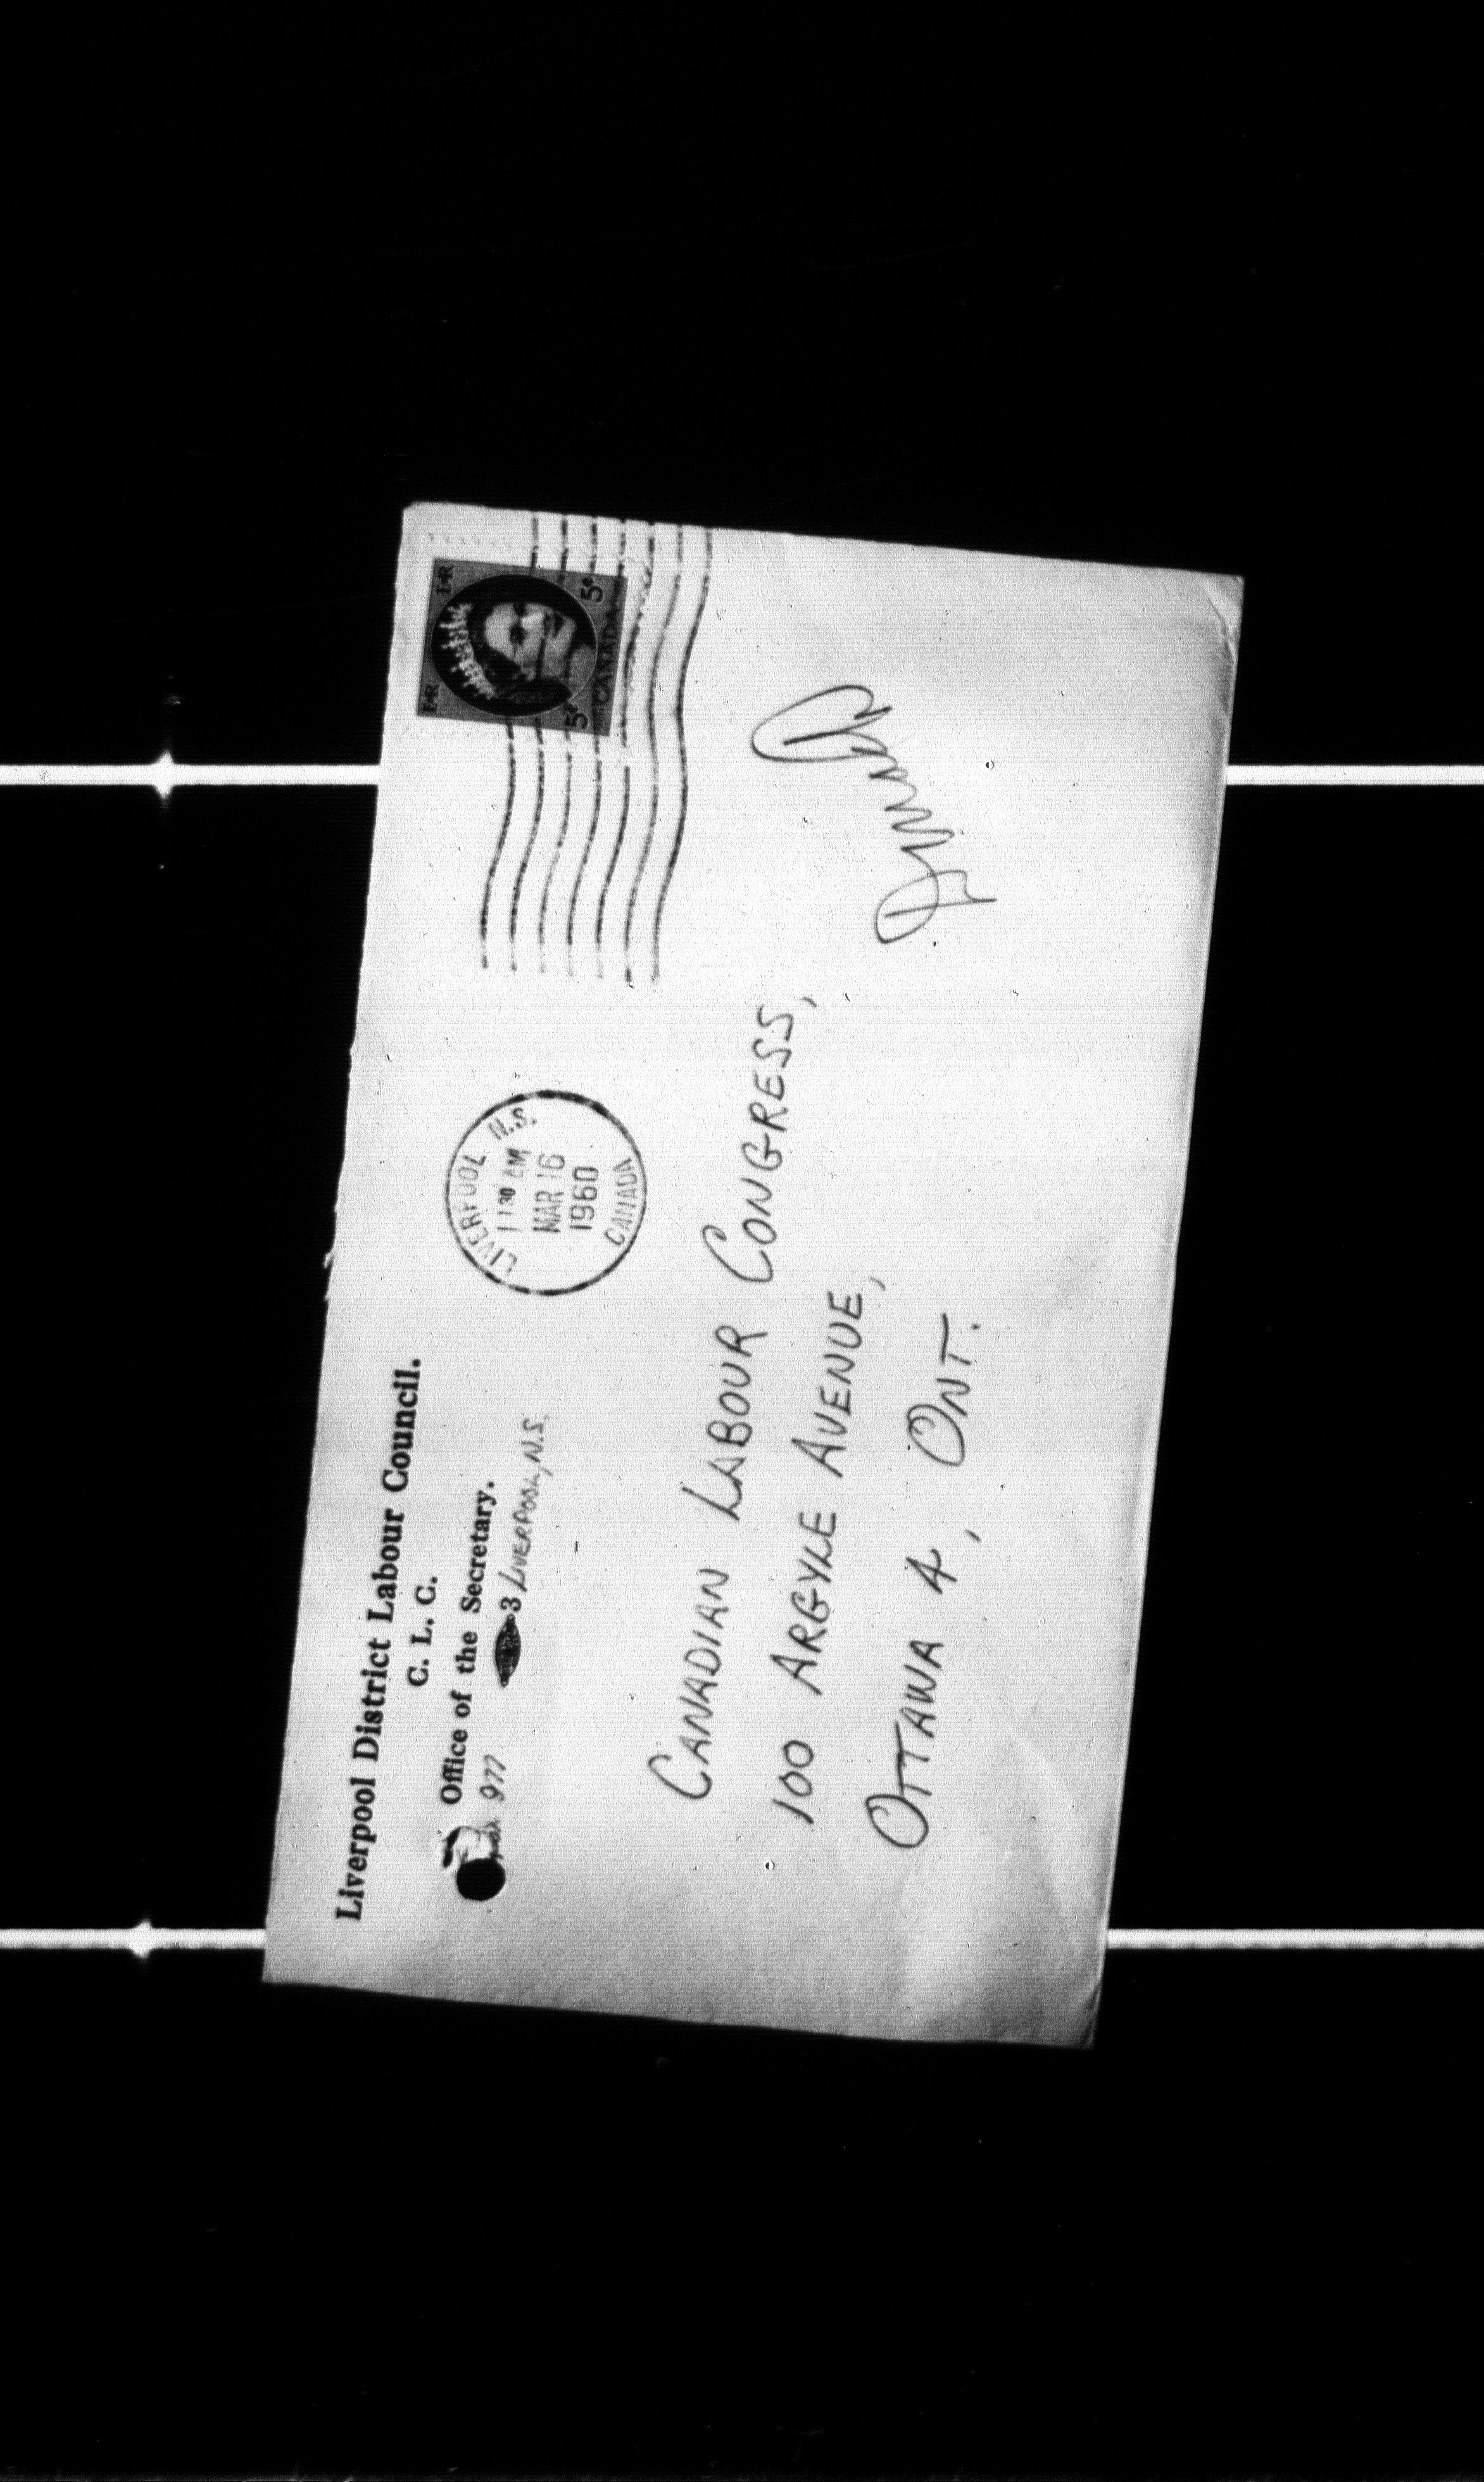 Liverpool District Labour Council.
C. L. C.
Office of the Secretary.
977 3 LIVERPOOL, N.S.
LIVERPOOL N.S.
11 30 AM
MAR 16
1960
CANADA
E·R E·R
5¢ 5¢
CANADA
CANADIAN LABOUR CONGRESS,
100 ARGYLE AVENUE,
OTTAWA 4, ONT.